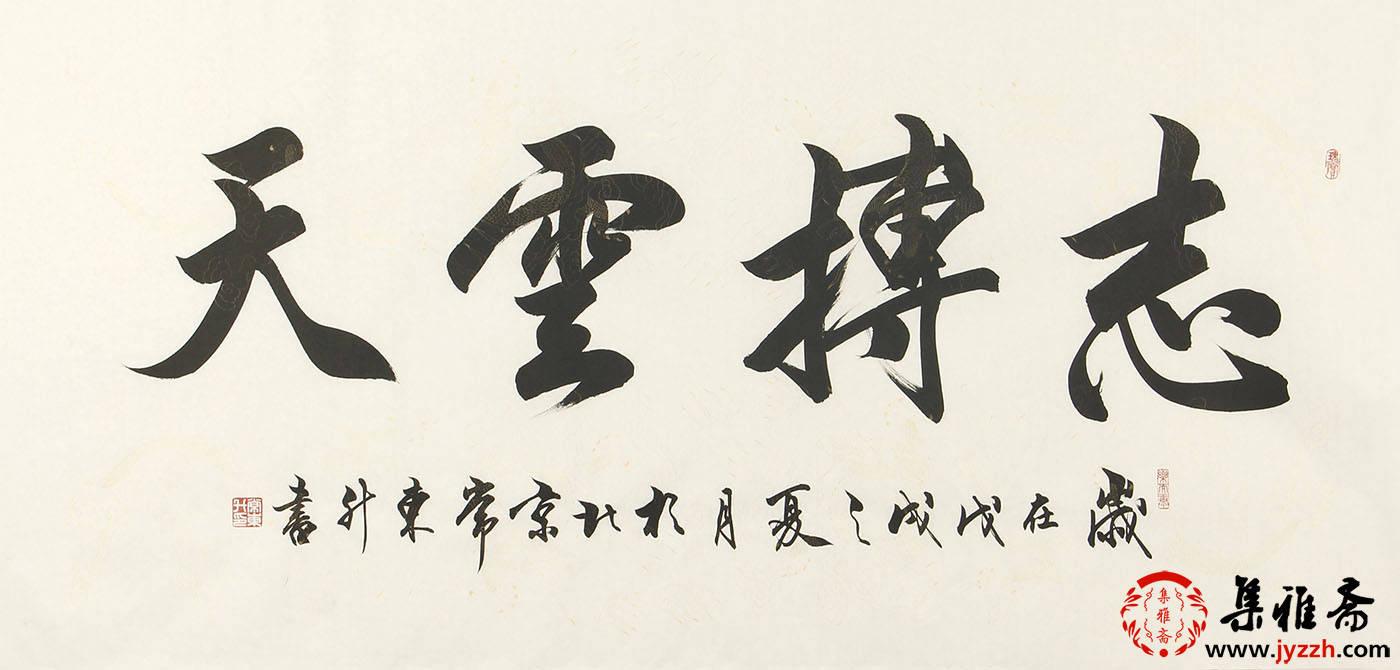 志搏雲天
歲在戊戌之夏月於北京常東升書
集雅斋
集雅斋
www.jyzzh.com